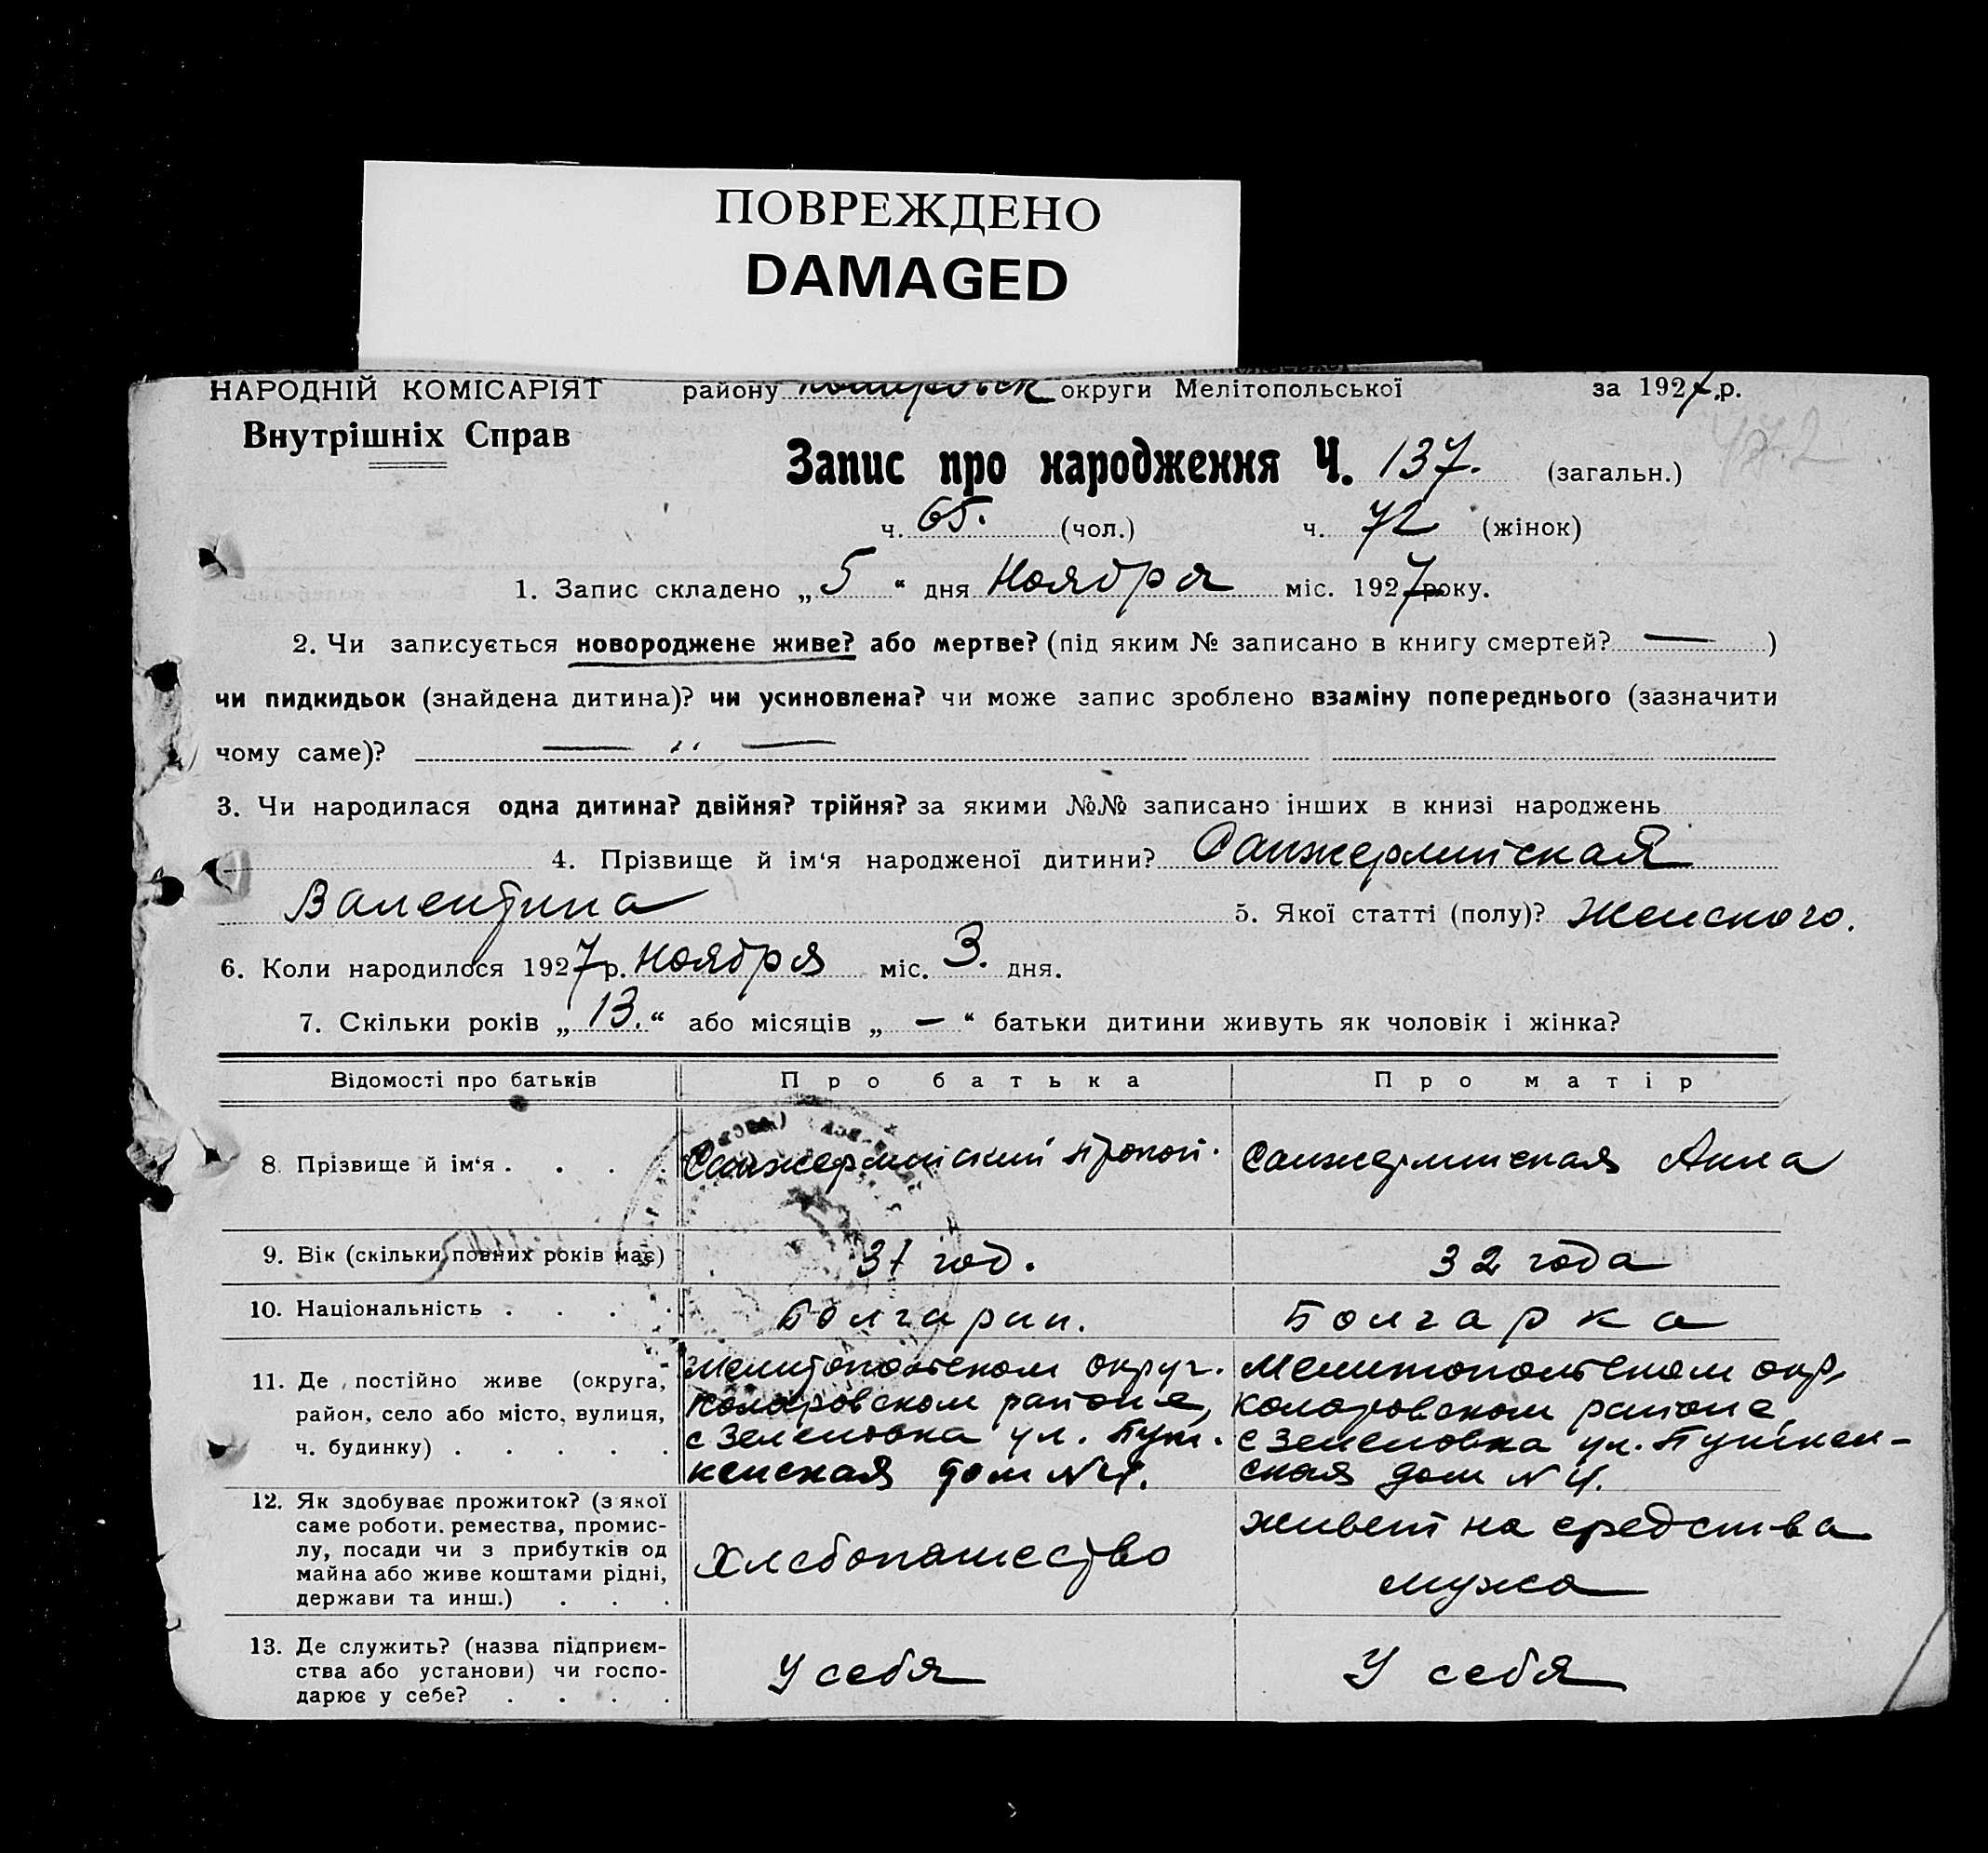 ПОВРЕЖДЕНО
DAMAGED
НАРОДНІЙ КОМІСАРІЯТ району округи Мелітопольської за 1927 р.
Внутрішніх Справ
Запис про народження Ч. 137. (загальн.)
ч. 65. (чол.) ч. 72 (жінок)
1. Запис складено „ 5 “ дня Ноября міс. 1927 року.
2. Чи записується новороджене живе? або мертве? (під яким № записано в книгу смертей? — )
чи пидкидьок (знайдена дитина)? чи усиновлена? чи може запис зроблено взаміну попереднього (зазначити
чому саме)? — " —
3. Чи народилася одна дитина? двійня? трійня? за якими №№ записано інших в книзі народжень
4. Прізвище й ім‘я народженої дитини? Санжерлинская
Валентина 5. Якої статті (полу)? Женского.
6. Коли народилося 1927 р. Ноября міс. 3. дня.
7. Скільки років „ 13. “ або місяців „ — “ батьки дитини живуть як чоловік і жінка?
Відомості про батьків Про батька Про матір
8. Прізвище й ім‘я . . . . Прокоп. Анна
9. Вік (скільки повних років має) 31 год. 32 года
10. Національність . . . . Болгарин. Болгарка
11. Де постійно живе (округа,
район, село або місто, вулиця,
ч. будинку) . . . . .
Мелитопольском округ.
Коларовском районе,
с Зеленовка ул. Пуш-
кенская дом № 4.
Мелитопольском окр,
Коларовском районе,
с Зеленовка ул. Пушкен-
ская дом № 4.
12. Як здобуває прожиток? (з якої
саме роботи. ремества, промис-
лу, посади чи з прибутків од
майна або живе коштами рідні,
держави та инш.) . . .
Хлебопашество
живет на средства
мужа
13. Де служить? (назва підприєм-
ства або установи) чи госпо-
дарює у себе? . . . .
У себя
У себя